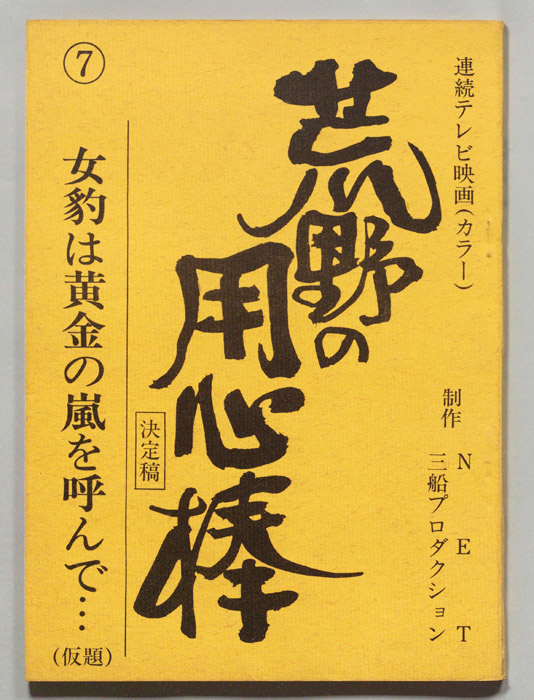 連続テレビ映画(カラー)
制作 NET
三船プロダクション
荒野の
用心棒
決定稿
⑦
女豹は黄金の嵐を呼んで…
(仮題)